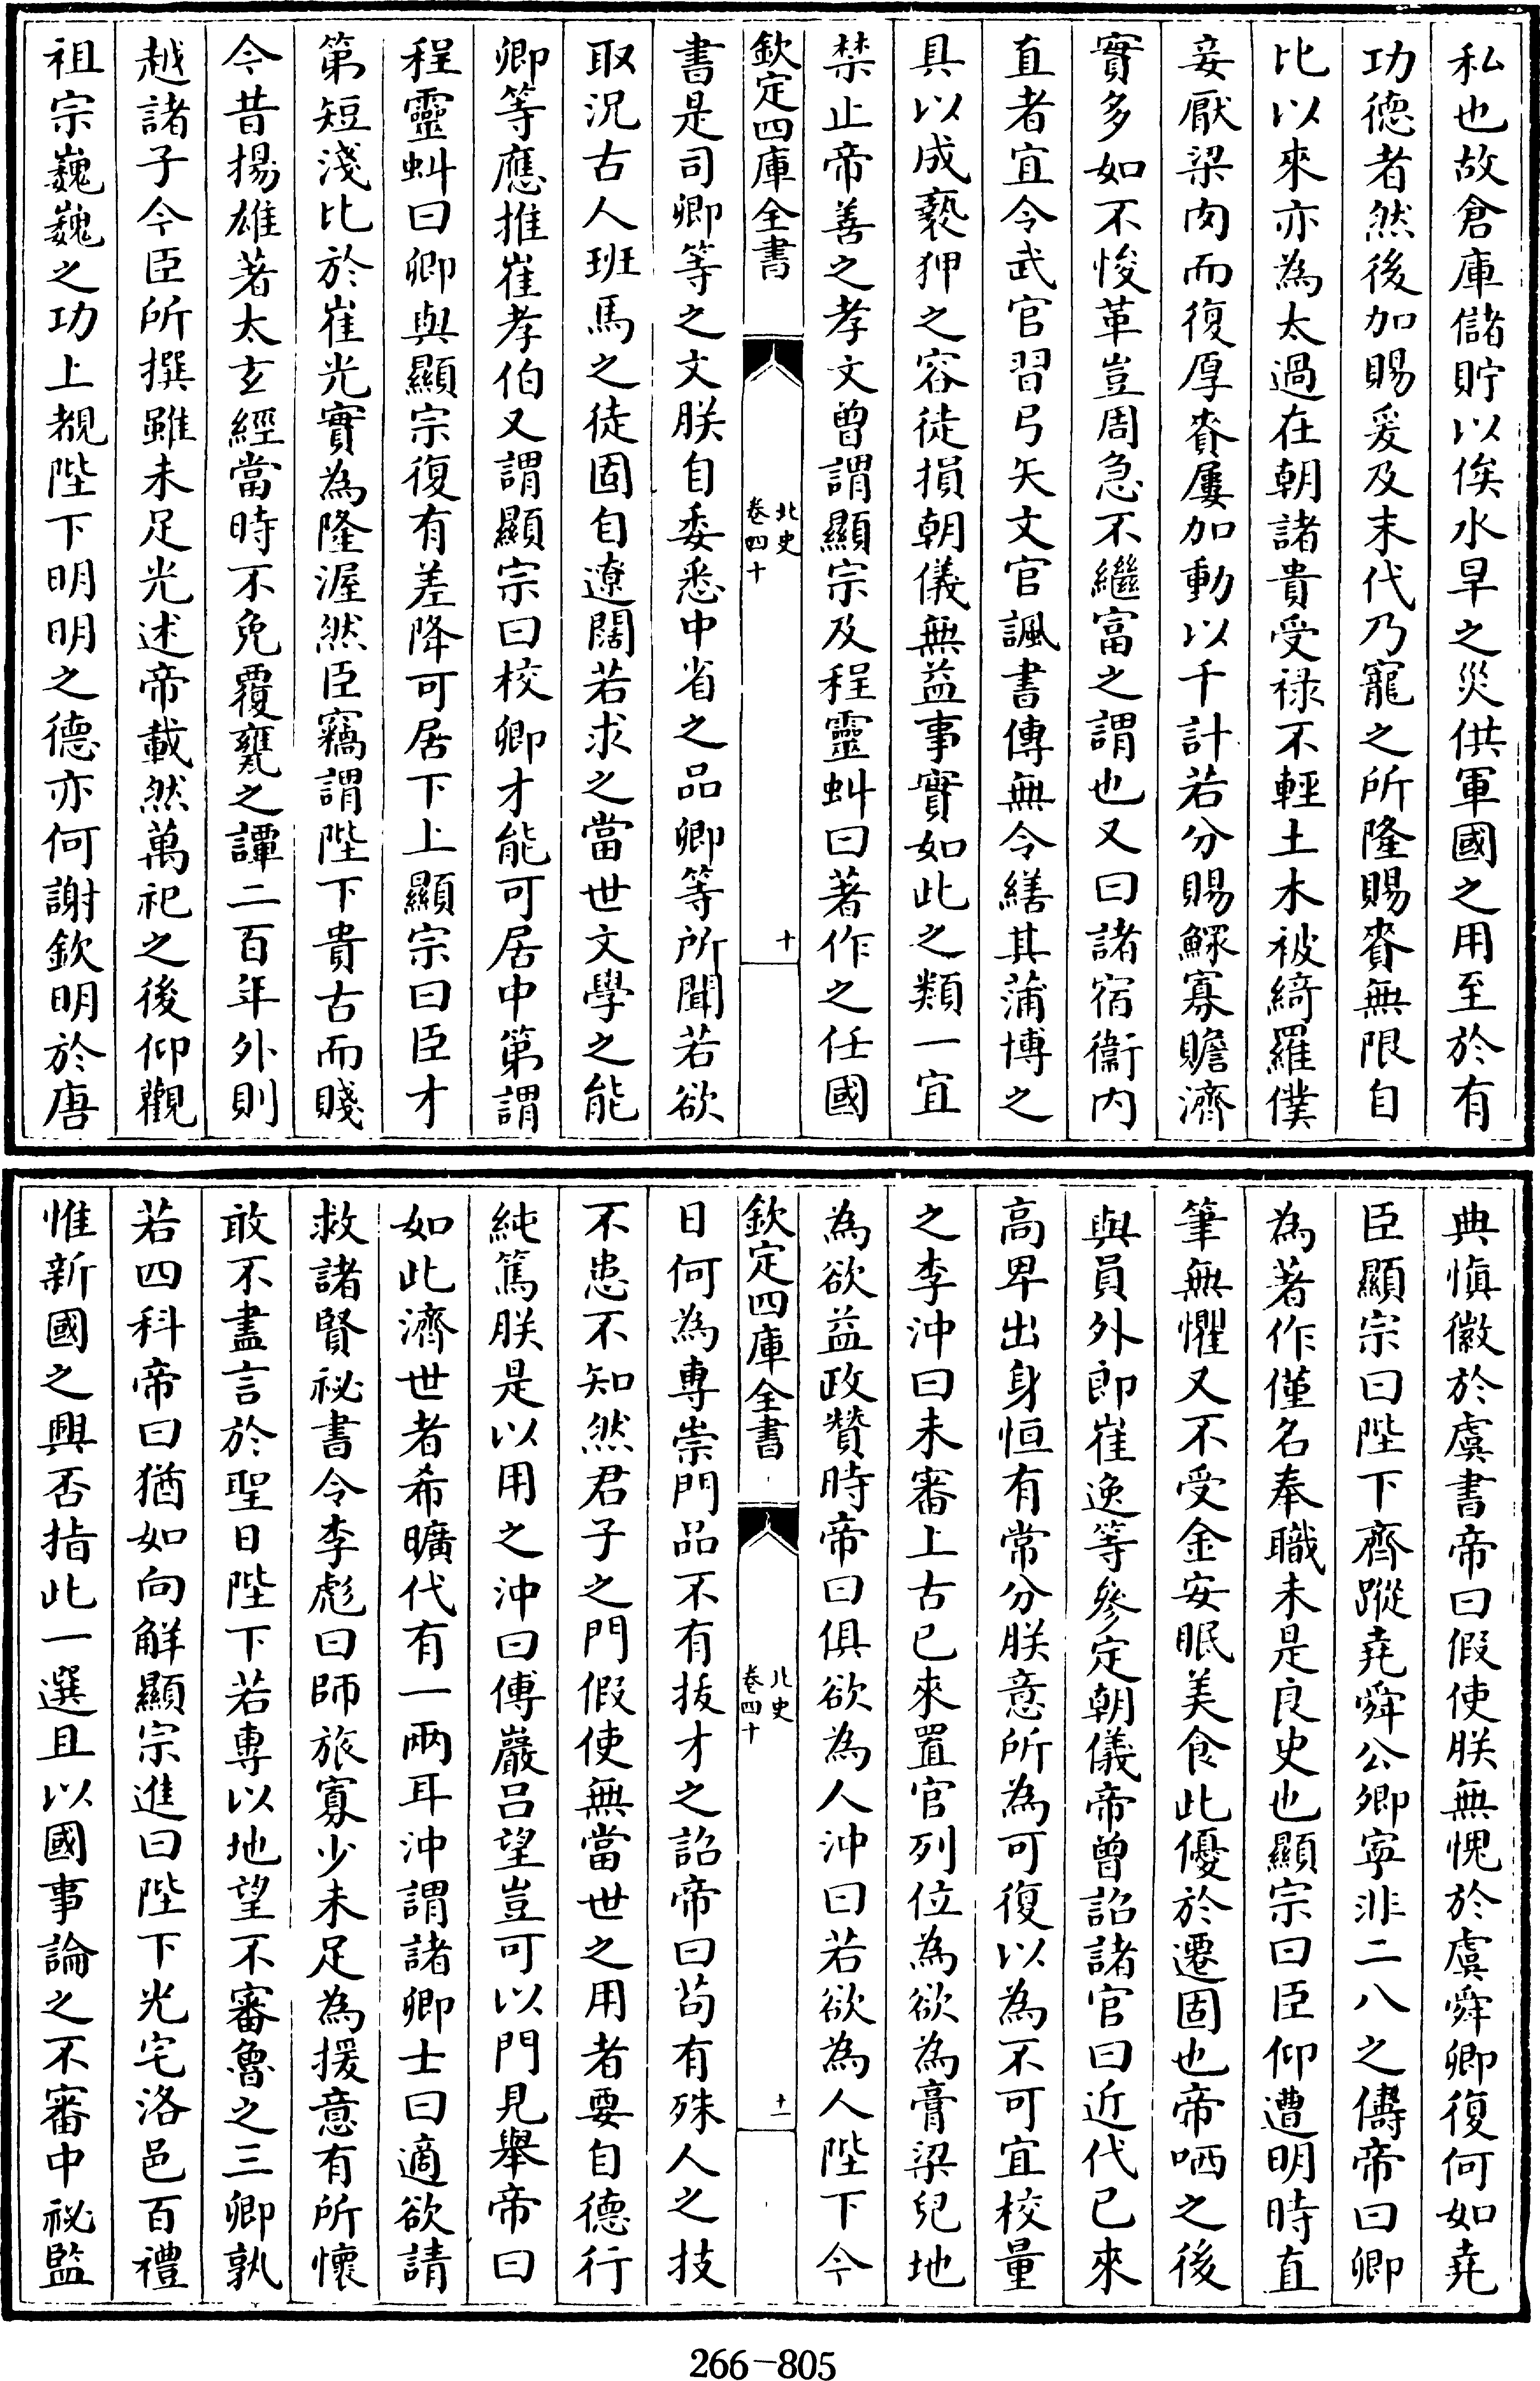 私也故倉庫儲貯以俟水旱之災供軍國之用至於有
功德者然後加賜爰及末代乃寵之所隆賜賚無限自
比以來亦為太過在朝諸貴受祿不輕土木被綺羅僕
妾厭梁肉而復厚賚屢加動以千計若分賜鰥寡贍濟
實多如不悛革豈周急不繼富之謂也又曰諸宿衛內
直者宜令武官習弓矢文官諷書傳無令繕其蒲博之
具以成褻狎之容徒損朝儀無益事實如此之類一宜
禁止帝善之孝文曾謂顯宗及程靈虯曰著作之任國
欽定四庫全書
北史
卷四十
十
書是司卿等之文朕自委悉中省之品卿等所聞若欲
取況古人班馬之徒固自遼闊若求之當世文學之能
卿等應推崔孝伯又謂顯宗曰校卿才能可居中第謂
程靈虯曰卿與顯宗復有差降可居下上顯宗曰臣才
第短淺比於崔光實為隆渥然臣竊謂陛下貴古而賤
今昔揚雄著太玄經當時不免覆甕之譚二百年外則
越諸子今臣所撰雖未足光述帝載然萬祀之後仰觀
祖宗巍巍之功上覩陛下明明之德亦何謝欽明於唐
典慎徽於虞書帝曰假使朕無愧於虞舜卿復何如堯
臣顯宗曰陛下齊蹤堯舜公卿寧非二八之儔帝曰卿
為著作僅名奉職未是良史也顯宗曰臣仰遭明時直
筆無懼又不受金安眠美食此優於遷固也帝哂之後
與員外郎崔逸等參定朝儀帝曾詔諸官曰近代已來
高卑出身恒有常分朕意所為可復以為不可宜校量
之李沖曰未審上古已來置官列位為欲為膏粱兒地
為欲益政贊時帝曰俱欲為人沖曰若欲為人陛下今
欽定四庫全書
北史
卷四十
十一
日何為專崇門品不有拔才之詔帝曰苟有殊人之技
不患不知然君子之門假使無當世之用者要自德行
純篤朕是以用之沖曰傅巖呂望豈可以門見舉帝曰
如此濟世者希曠代有一兩耳沖謂諸卿士曰適欲請
救諸賢祕書令李彪曰師旅寡少未足為援意有所懷
敢不盡言於聖日陛下若專以地望不審魯之三卿孰
若四科帝曰猶如向解顯宗進曰陛下光宅洛邑百禮
惟新國之興否指此一選且以國事論之不審中祕監
266-805